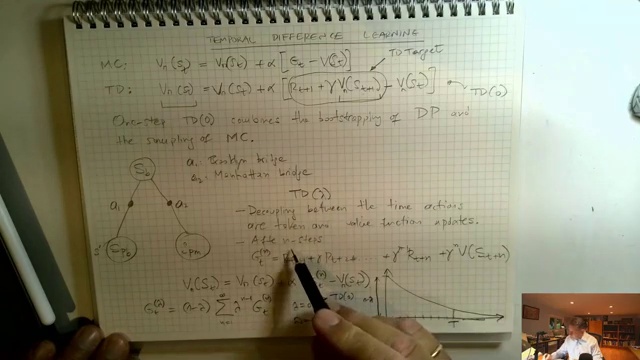 TEMPORAL DIFFERENCE LEARNING
MC: Vπ(St) = Vπ(St) + α [Gt - V(St)]
TD Target
TD: Vπ(St) = Vπ(St) + α [Rt+1 + γ Vπ(St+1) - Vπ(St)] TD(0)
One-step TD(0) combines the bootstrapping of DP and
the sampling of MC.
a1: Brooklyn bridge
a2: Manhattan bridge
S0
a1 a2
TD(λ)
- Decoupling between the time actions
are taken and value function updates.
- After n-steps
Rt+n + γⁿ V(St+n)
Vπ(St) = Vπ(St) + - Vπ(St)]
Gt(λ) = (1-λ) Σ n=1 ∞ λⁿ⁻¹ Gt(n)
TD(0)
T